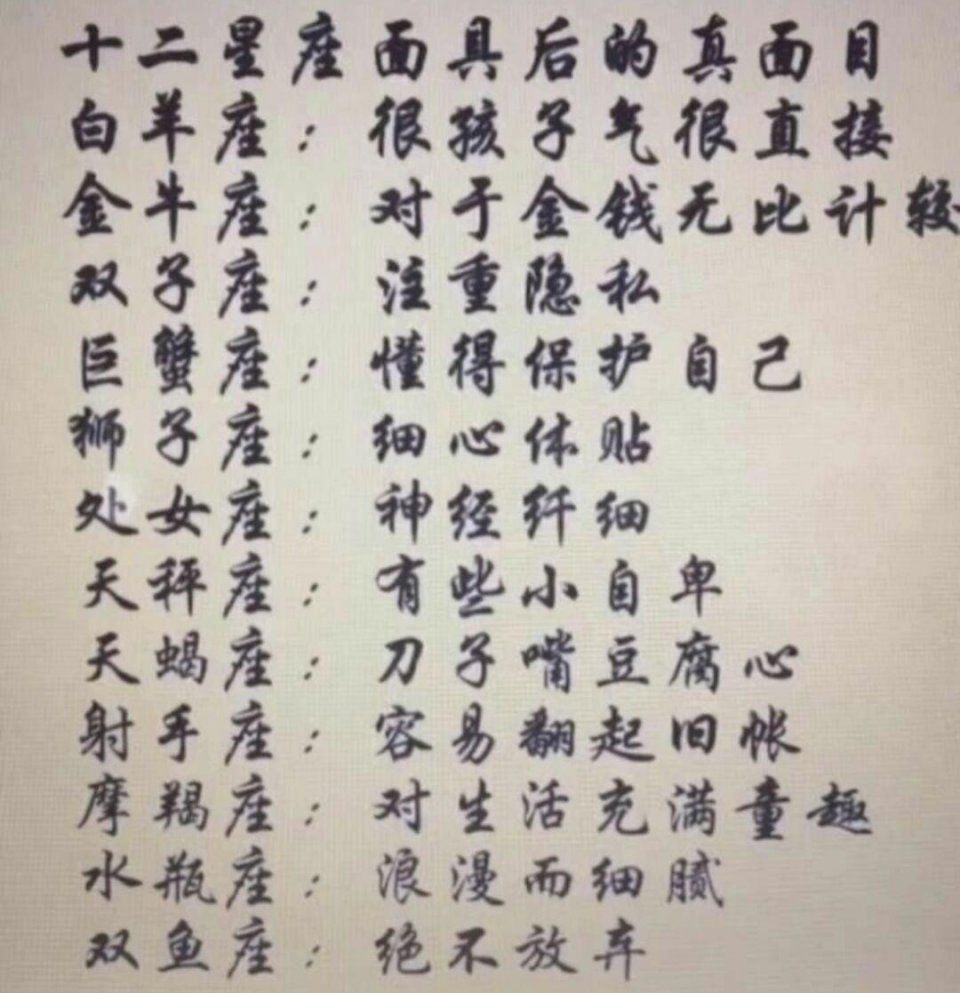 十二星座面具后的真面目
白羊座：很孩子气很直接
金牛座：对于金钱无比计较
双子座：注重隐私
巨蟹座：懂得保护自己
狮子座：细心体贴
处女座：神经纤细
天秤座：有些小自卑
天蝎座：刀子嘴豆腐心
射手座：容易翻起旧帐
摩羯座：对生活充满童趣
水瓶座：浪漫而细腻
双鱼座：绝不放弃